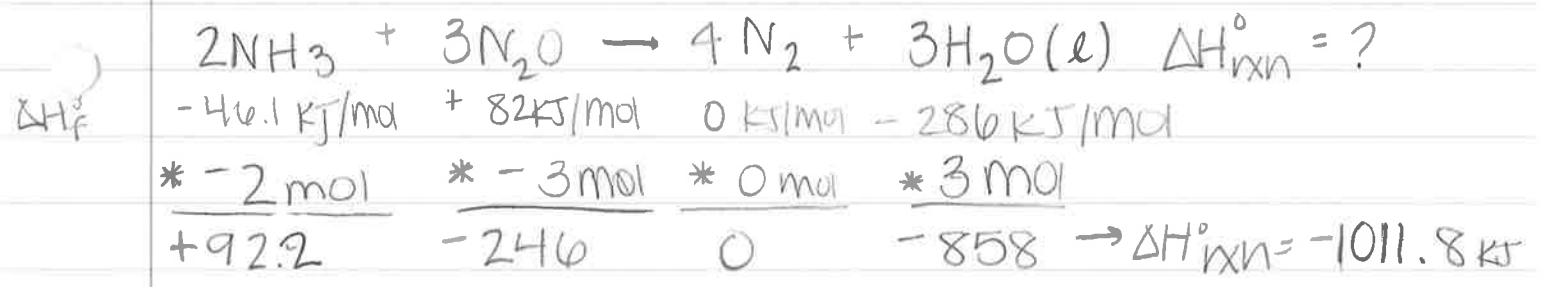 2NH3 + 3N₂O → 4 N₂ + 3H₂O(l) ΔH°rxn = ?
ΔH°f -46.1 KJ/mol + 82KJ/mol 0 KJ/mol - 286KJ/mol
* -2 mol * - 3mol * 0 mol * 3 mol
+92.2 -246 0 -858 → ΔH°rxn = -1011.8 KJ